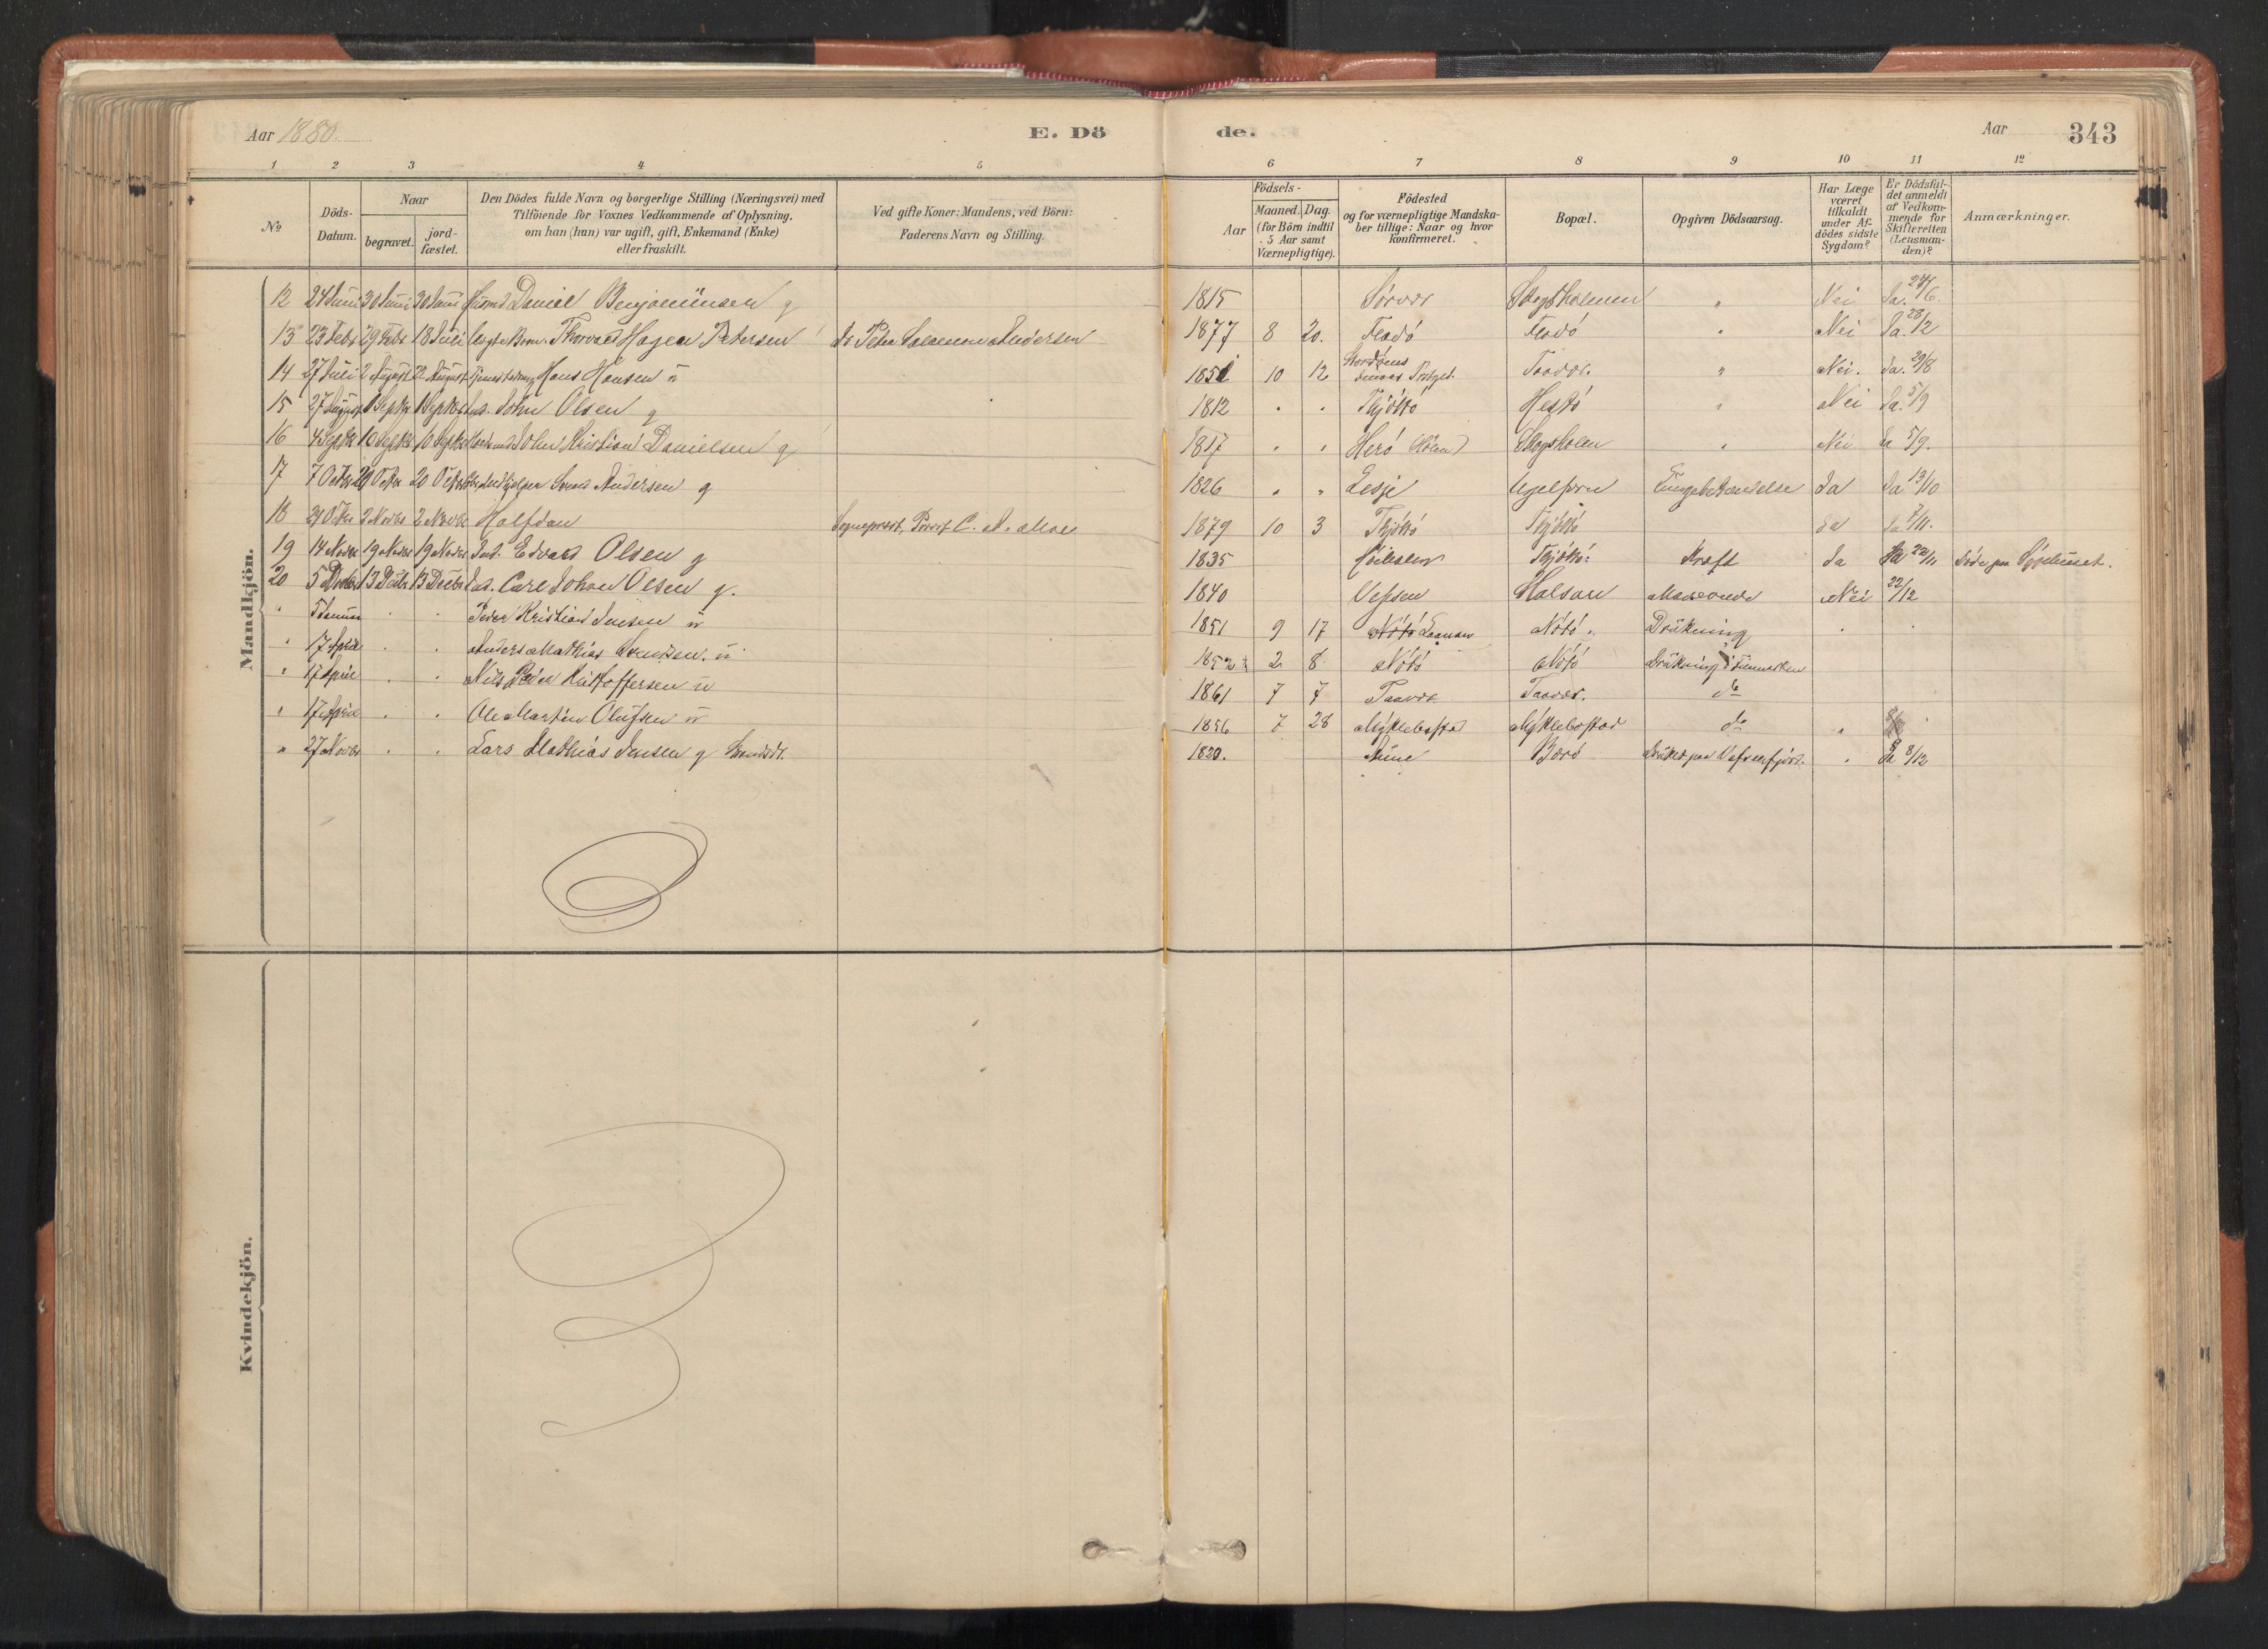 Aar 1880.
E. Dö
de.
Aar
343
1 2 3 4 5 6 7 8 9 10 11 12
№
Döds-Datum.
Naar
begravet.
jord-fæstet.
Den Dödes fulde Navn og borgerlige Stilling (Næringsvei) med
Tilföiende for Voxnes Vedkommende af Oplysning,
om han (hun) var ugift, gift, Enkemand (Enke)
eller fraskilt.
Ved gifte Koner: Mandens, ved Börn:
Faderens Navn og Stilling.
Födsels-
Aar
Maaned. Dag.
(for Börn indtil
5 Aar samt
Værnepligtige).
Födested
og for værnepligtige Mandska-
ber tillige: Naar og hvor
konfirmeret.
Bopæl.
Opgiven Dödsaarsag.
Har Læge
været
tilkaldt
under Af-
dödes sidste
Sygdom?
Er Dödsful-
det anmeldt
af Vedkom-
mende for
Skifteretten
(Lensman-
den)?
Anmærkninger.
Mandkjön.
12 24 Juni 30 Juni 30 Juni Husmd Daniel Benjaminsen g 1815 Sørvær Skogsholmen " Nei Ja. 24/6.
13 23 Febr 29 Febr 18 Juli Thorvald Hagen Petersen Peter Andersen 1877 8 20. Flodö Flodö " Nei Ja. 28/2
14 27 Juli 2 August 22 August Hans Hansen u 1851 10 12 Taavær. " Nei. Ja. 29/8
15 27 August 1 Septbr 1 Septbr Ins. John Olsen g 1812 " " Thjöttö Hestö " Nei Ja. 5/9
16 4 Septbr 10 Septbr 10 Septbr John Kristian Danielsen g 1817 " " Herö Skogsholm " Nei Ja 5/9.
17 7 Octbr 20 Octbr 20 Octbr Andersen g 1826 " " Lesje Lungebetændelse Ja Ja 13/10
18 29 Octbr 2 Novbr 2 Novbr Halfdan Sogneprest, Provst C. 1879 10 3 Thjöttö Thjöttö Ja Ja 7/11.
19 14 Novbr 19 Novbr 19 Novbr Ins. Edvard Olsen g 1835 Thjöttö Kræft Ja Ja 22/11 Döde paa Sygehuset.
20 5 Decbr 13 Decbr 13 Decbr Ins. Carl Johan Olsen g. 1840 Vefsen Halsan Nei 22/12
" 5 Januar " " Peder Kristian Jensen u 1851 9 17 Nötö Nötö Drukning " "
" 17 April " " Anders Mathias u 1852 2 8 Nötö Nötö Drukning i Finmarken
" 17 April " " Nils Peder Kristoffersen u 1861 7 7 Taavær Taavær. do
" 17 April " " Ole Martin Olufsen u 1856 7 28 Myklebostad Myklebostad do "
" 27 Novbr " " Lars Mathias Jensen g 1820. Bærö Druknet paa Vefsenfjord. " Ja 8/12
Kvindekjön.